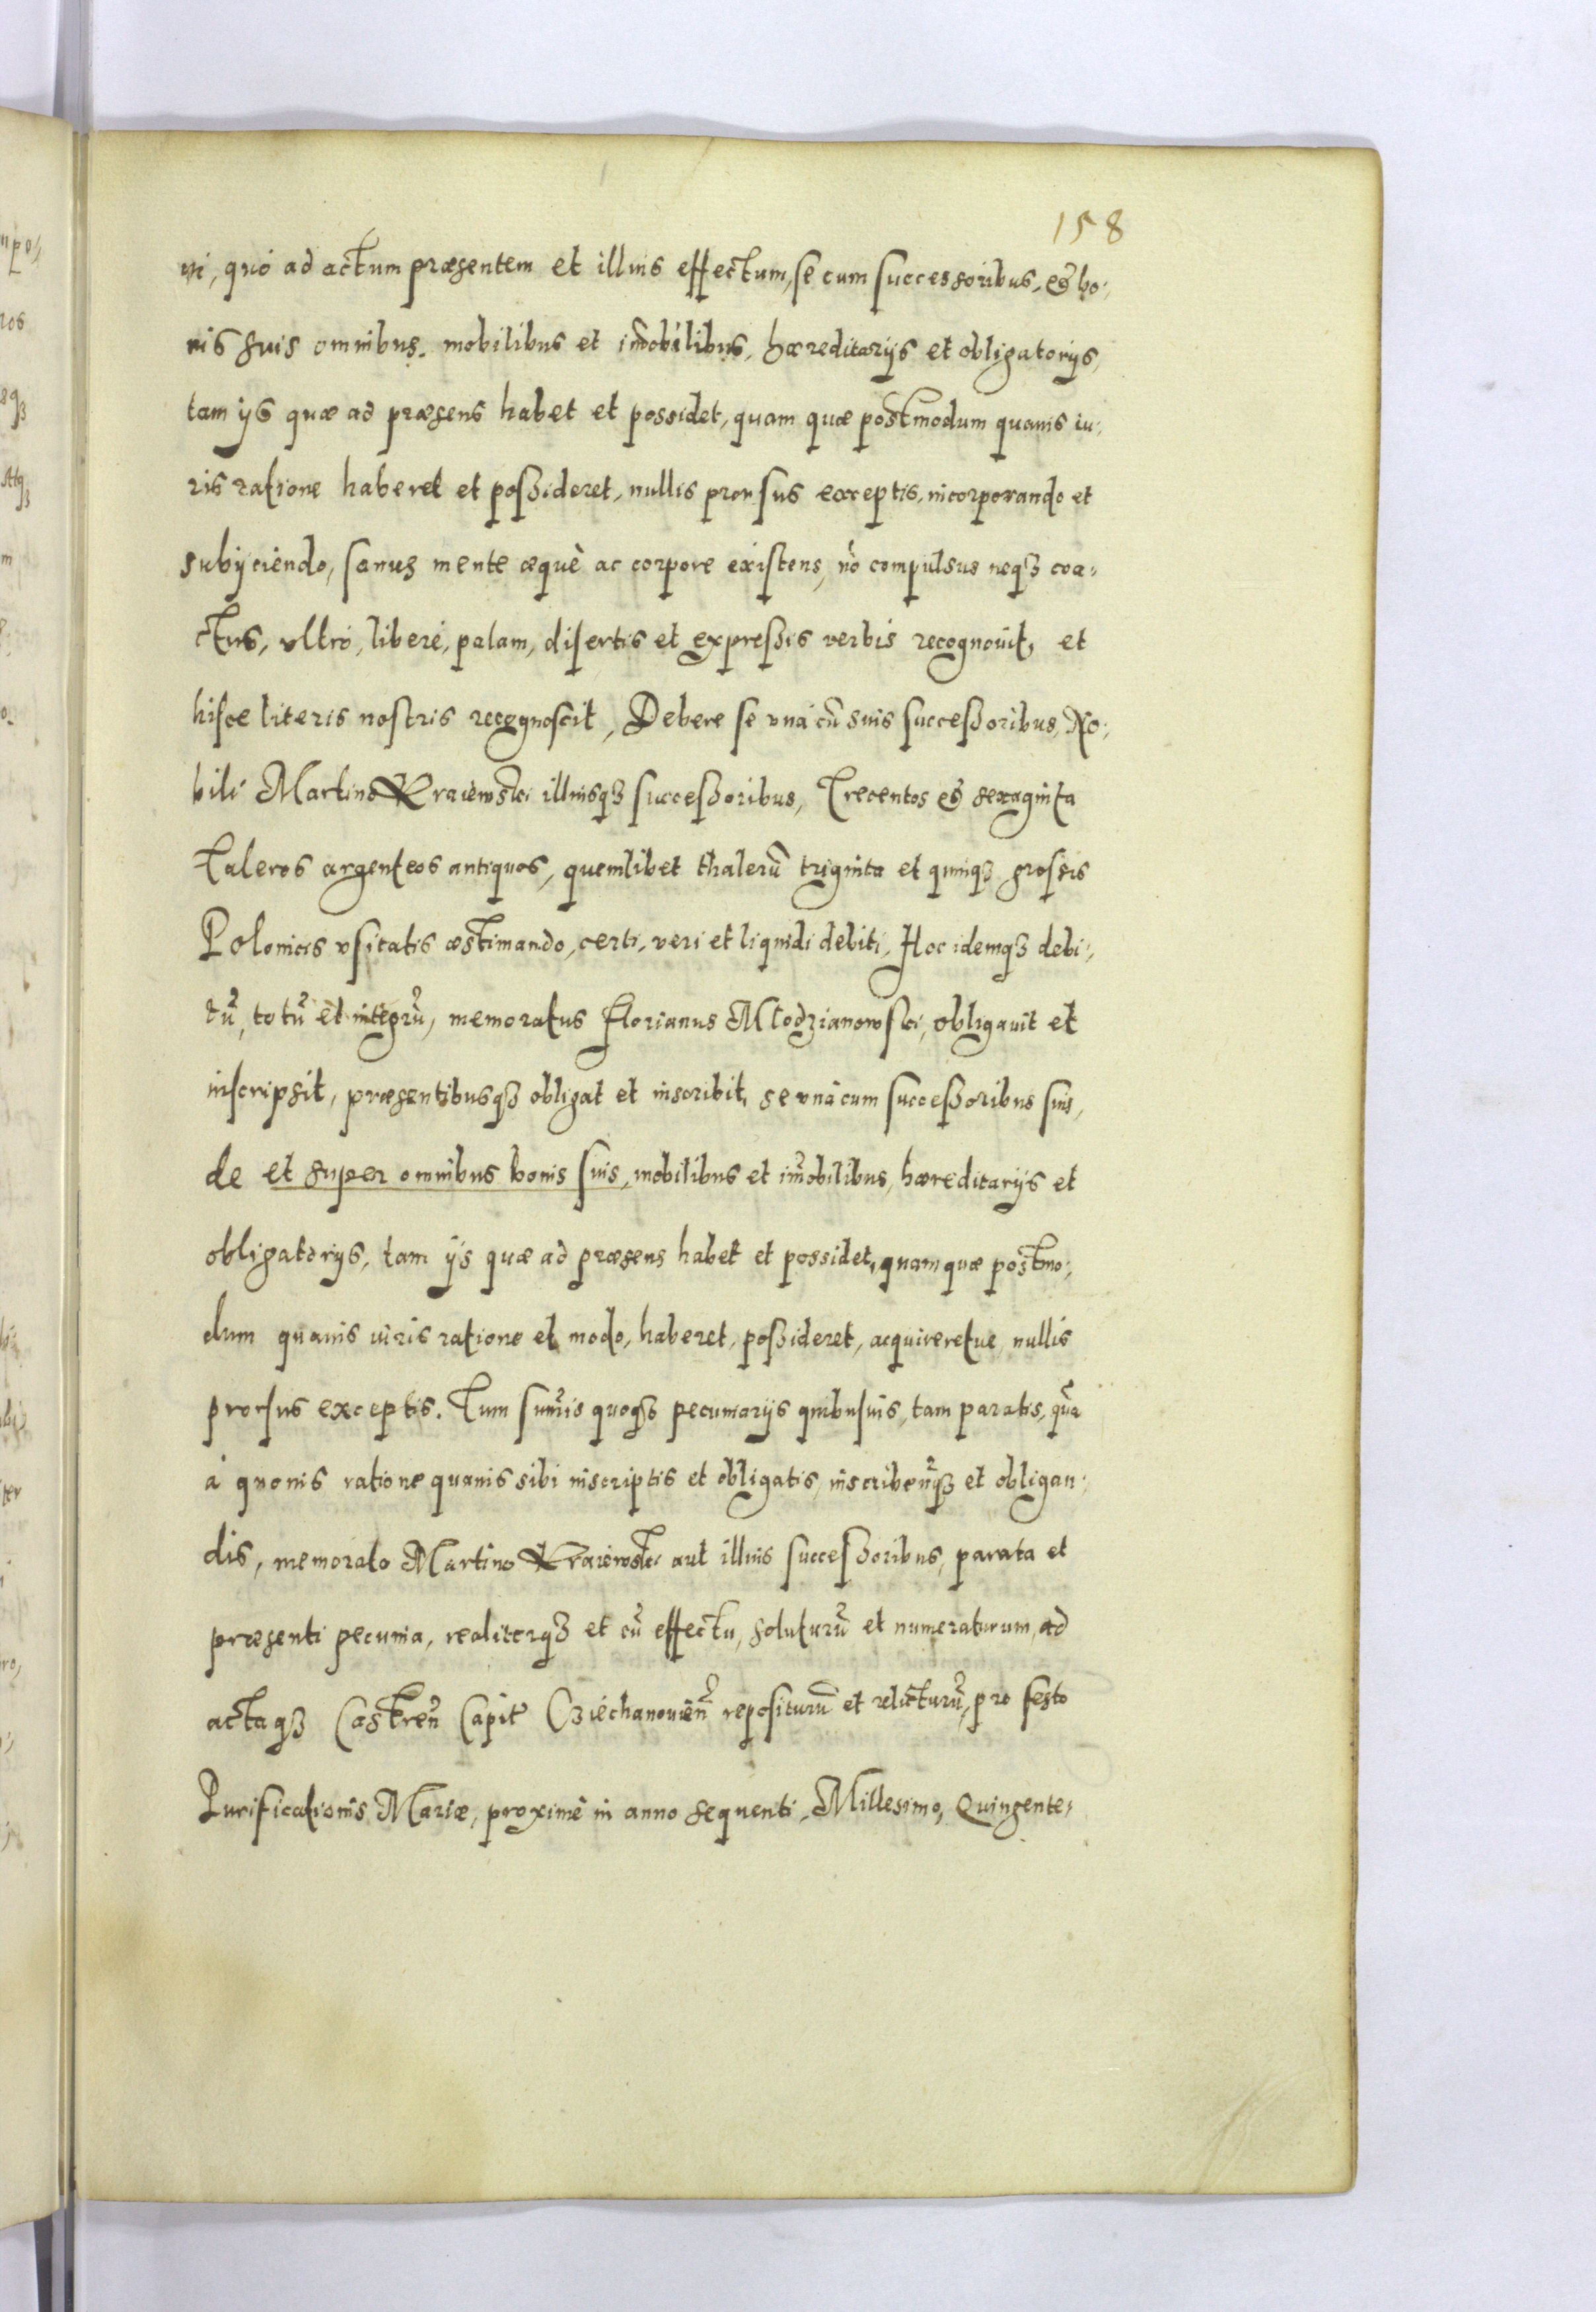 158
ni, quó ad actum præsentem et illius effectum, se cum successoribus, et bo:
nis suis omnibus, mobilibus et im̃obilibus, hæreditarijs et obligatorijs,
tam ijs quæ ad præsens habet et possidet, quam quæ postmodum quauis iu:
ris ratione haberet et possideret, nullis prorsus exceptis, incorporando et
subijciendo, sanus mente æquè ac corpore existens, nõ compulsus neqꝫ coa:
ctus, vltró, liberé, palam, disertis et expressis verbis recognouit, et
hisce literis nostris recognoscit, Debere se vná cũ suis successoribus, No:
bili Martino Kraiewski illiusqꝫ successoribus, Trecentos et sexaginta
Taleros argenteos antiquos, quemlibet thalerũ triginta et quinqꝫ grossis
Polonicis vsitatis æstimando, certi, veri et liquidi debiti, Hoc idemqꝫ debi:
tũ, totũ et integrũ, memoratus Florianus Mlodzianowski, obligauit et
inscripsit, præsentibusqꝫ obligat et inscribit, se vnà cum successoribus suis,
de et super omnibus bonis suis, mobilibus et im̃obilibus, hæreditarijs et
obligatorijs, tam ijs quæ ad præsens habet et possidet, quam quæ postmo:
dum quauis iuris ratione et modo, haberet, possideret, acquireretue, nullis
prorsus exceptis. Tum sum̃is quoqꝫ pecuniarijs quibusuis, tam paratis, quã
á quouis ratione quauis sibi inscriptis et obligatis, inscribeñqꝫ et obligan:
dis, memorato Martino Kraiewski aut illius successoribus, parata et
præsenti pecunia, realiterqꝫ et cũ effectu, soluturũ et numeraturum, ad
actaqꝫ Castreñ Capit̃ Cziechanouieñ repositurũ et relicturũ, pro festo
Purificationis Mariæ, proximè in anno sequenti, Millesimo, Quingente: